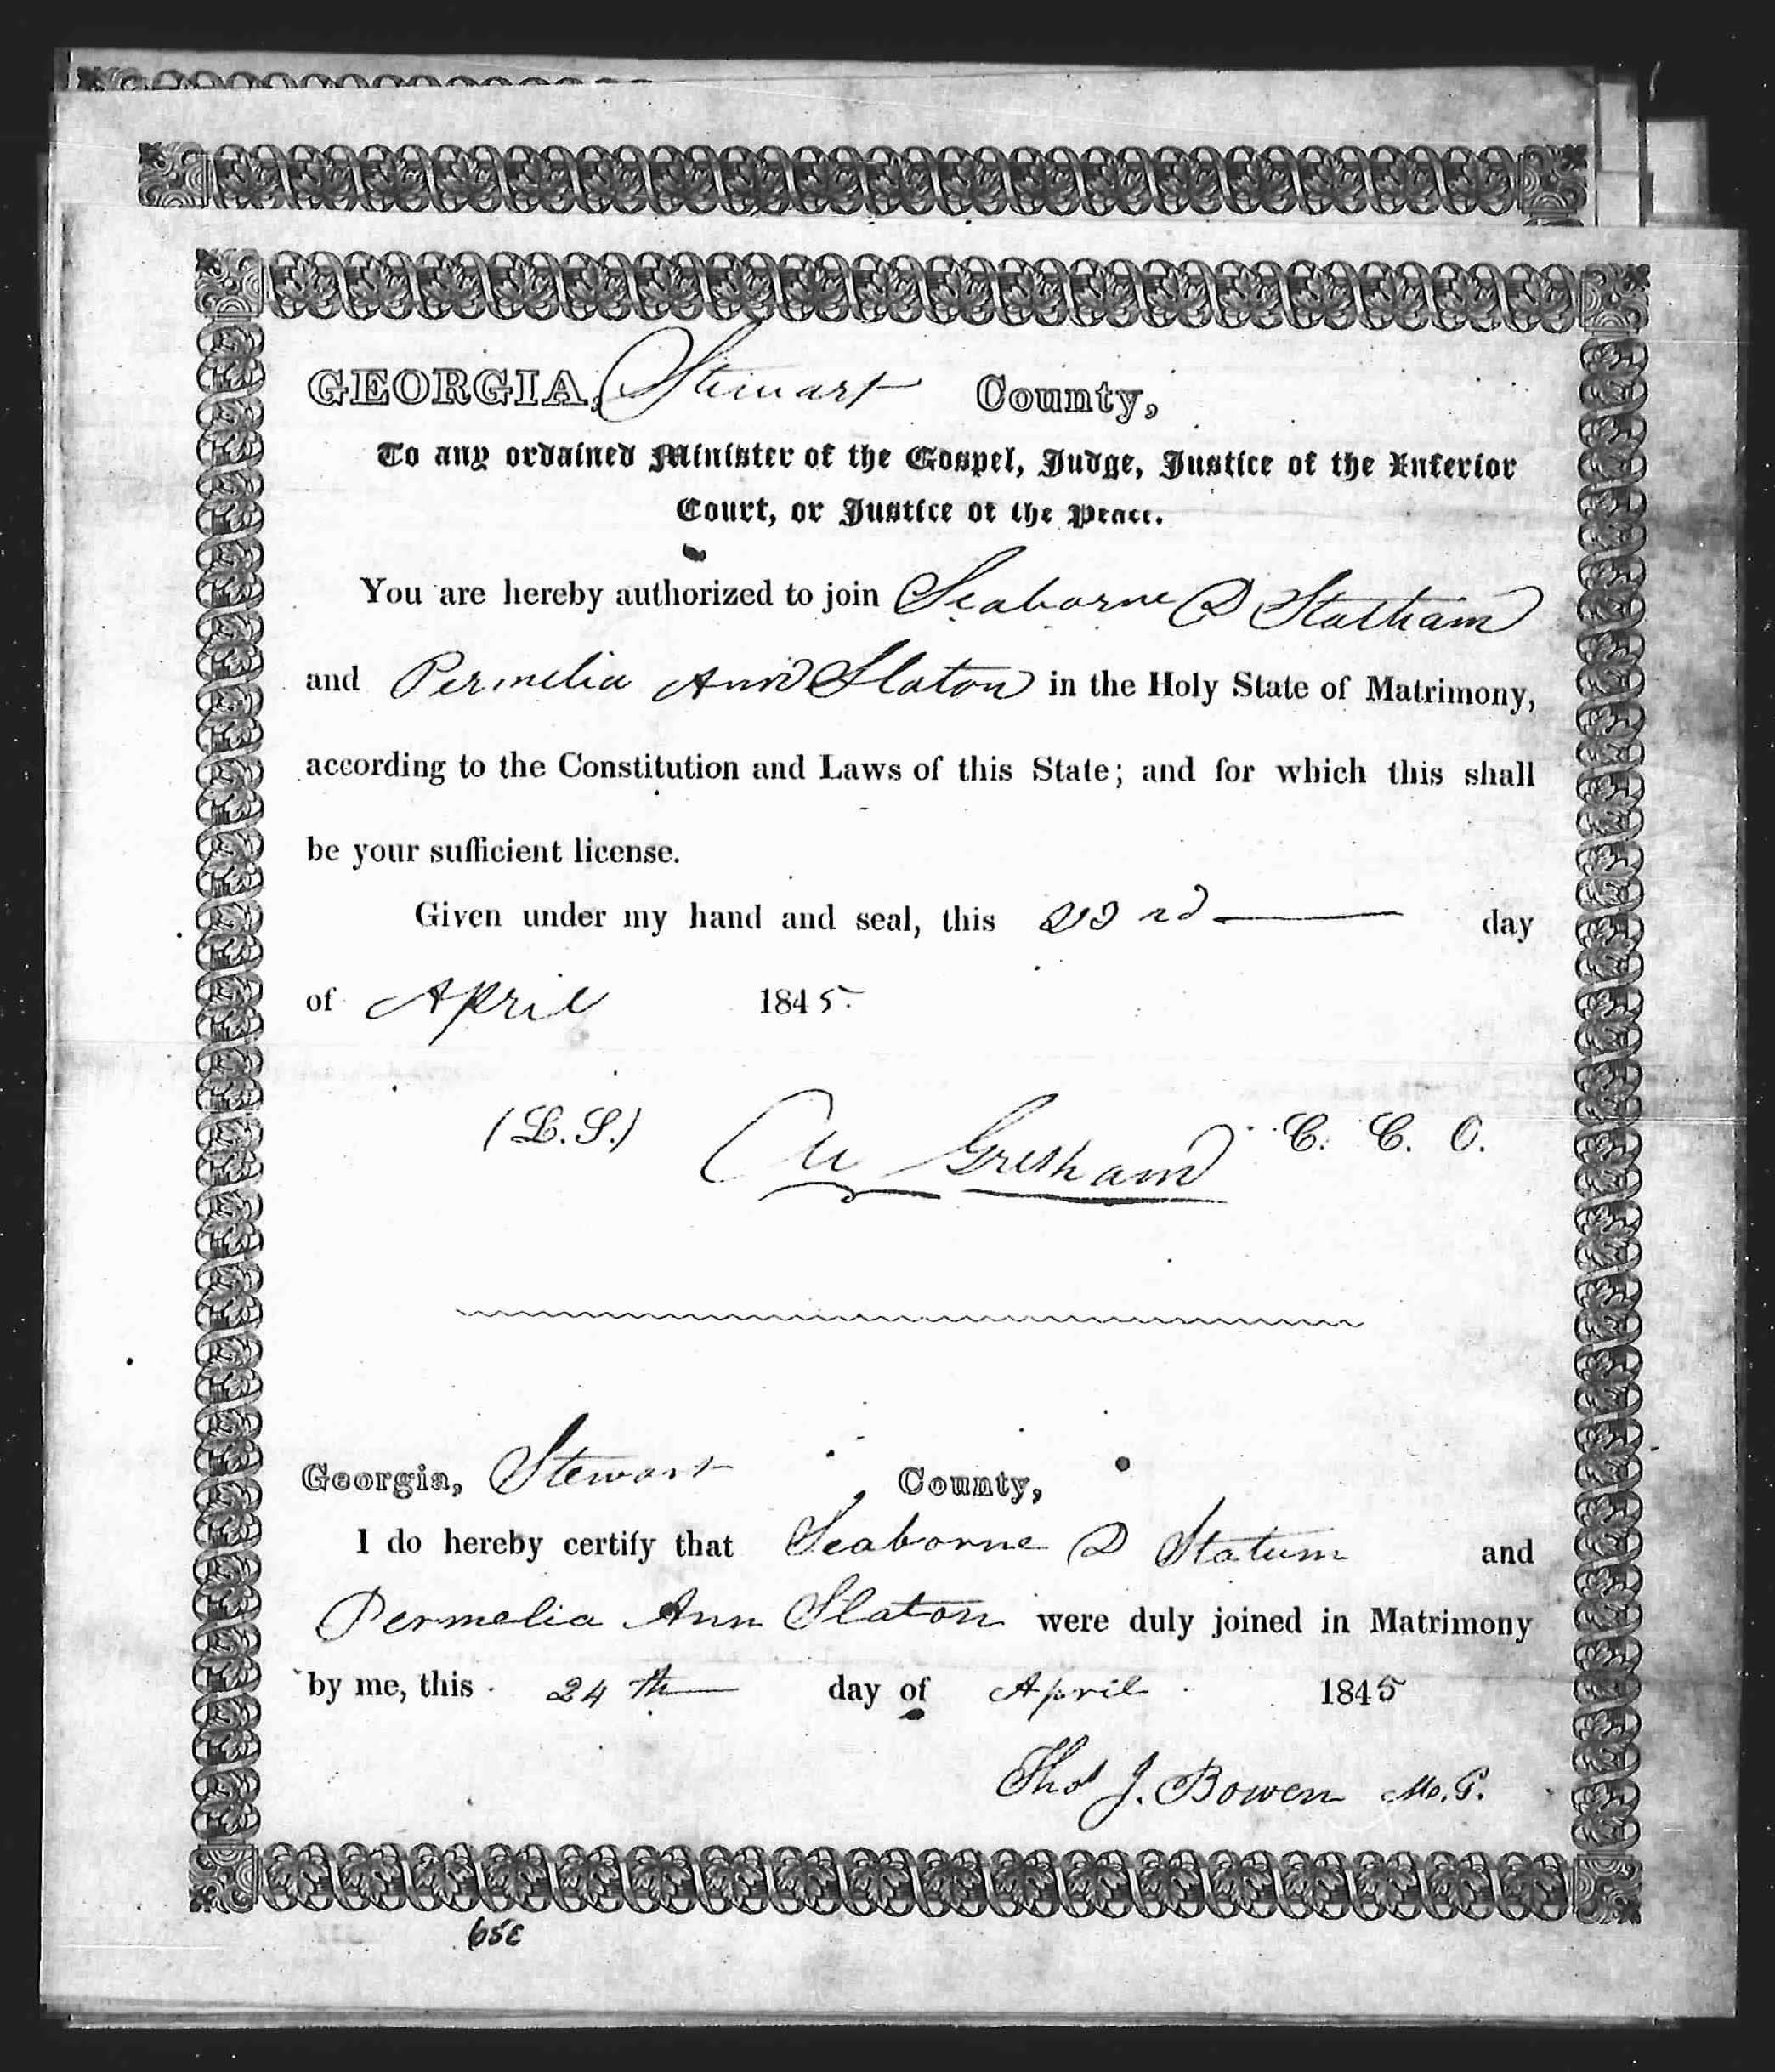 GEORGIA, Stewart County,
To any ordained Minister of the Gospel, Judge, Justice of the Inferior
Court, or Justice of the Peace.
You are hereby authorized to join Seaborne D Statham
and Permelia Ann Slaton in the Holy State of Matrimony,
according to the Constitution and Laws of this State; and for which this shall
be your sufficient license.
Given under my hand and seal, this 23rd day
of April 1845.
(L.S.) Gresham C. C. O.
Georgia, Stewart County,
I do hereby certify that Seaborne D Statum and
Permelia Ann Slaton were duly joined in Matrimony
by me, this 24th day of April 1845
Thos J. Bowen M.G.